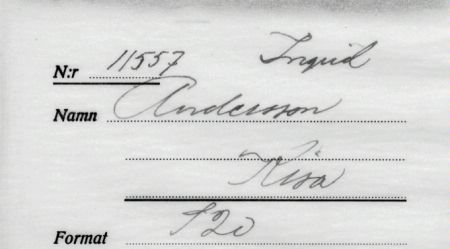 N:r 11557 Ingrid
Namn Andersson
Kisa
Format 120